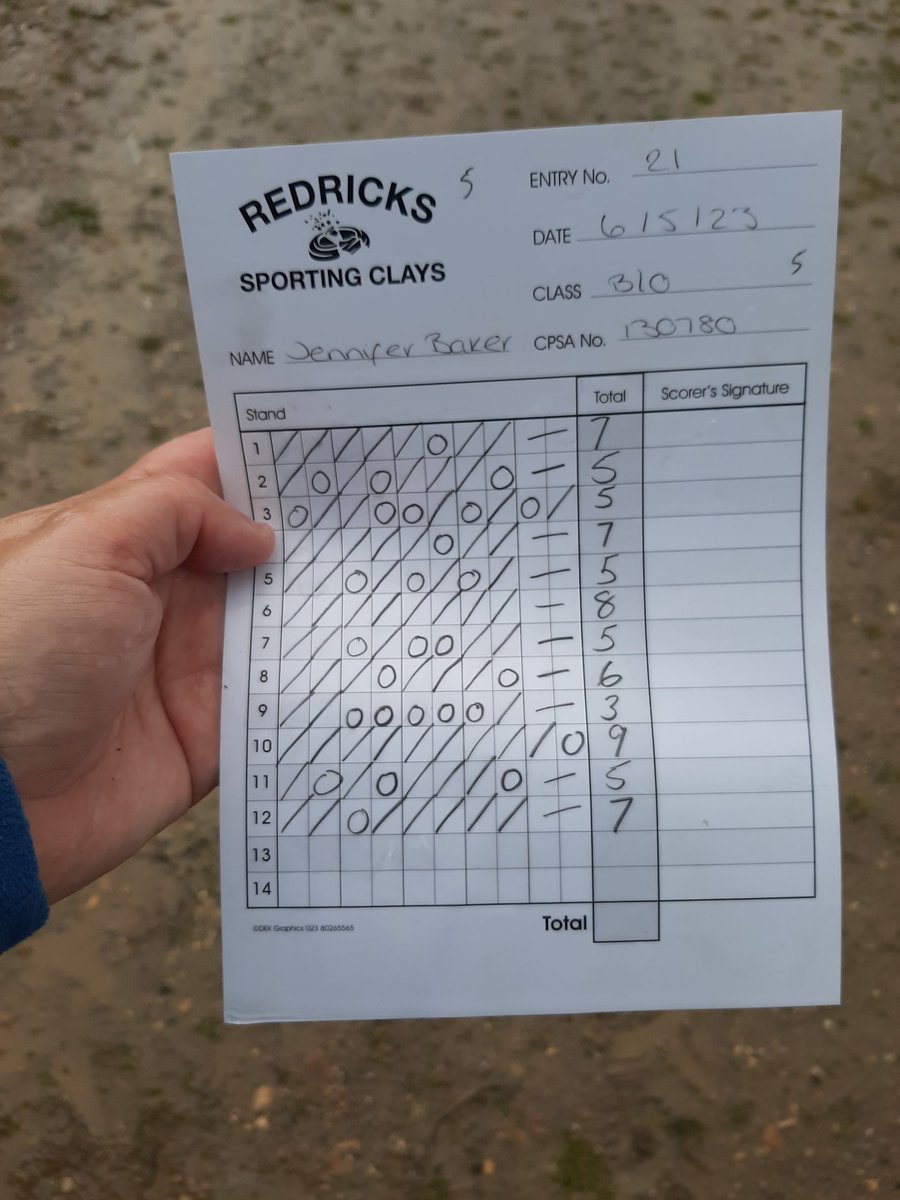 REDRICKS 5
SPORTING CLAYS
ENTRY No. 21
DATE 6/5/23
CLASS B/O 5
NAME Jennifer Baker CPSA No. 130780
Stand Total Scorer's Signature
1 / / / / / O / / — 7
2 / O / O / / / O — 5
3 O / / O O / O / O / 5
/ / / / / O / / — 7
5 / / O / O / O / — 5
6 / / / / / / / / — 8
7 / / O / O O / / — 5
8 / / / O / / / O — 6
9 / / O O O O O / — 3
10 / / / / / / / / / O 9
11 / O / O / / / O — 5
12 / / O / / / / / — 7
13
14
©DEK Graphics 023 80265565 Total